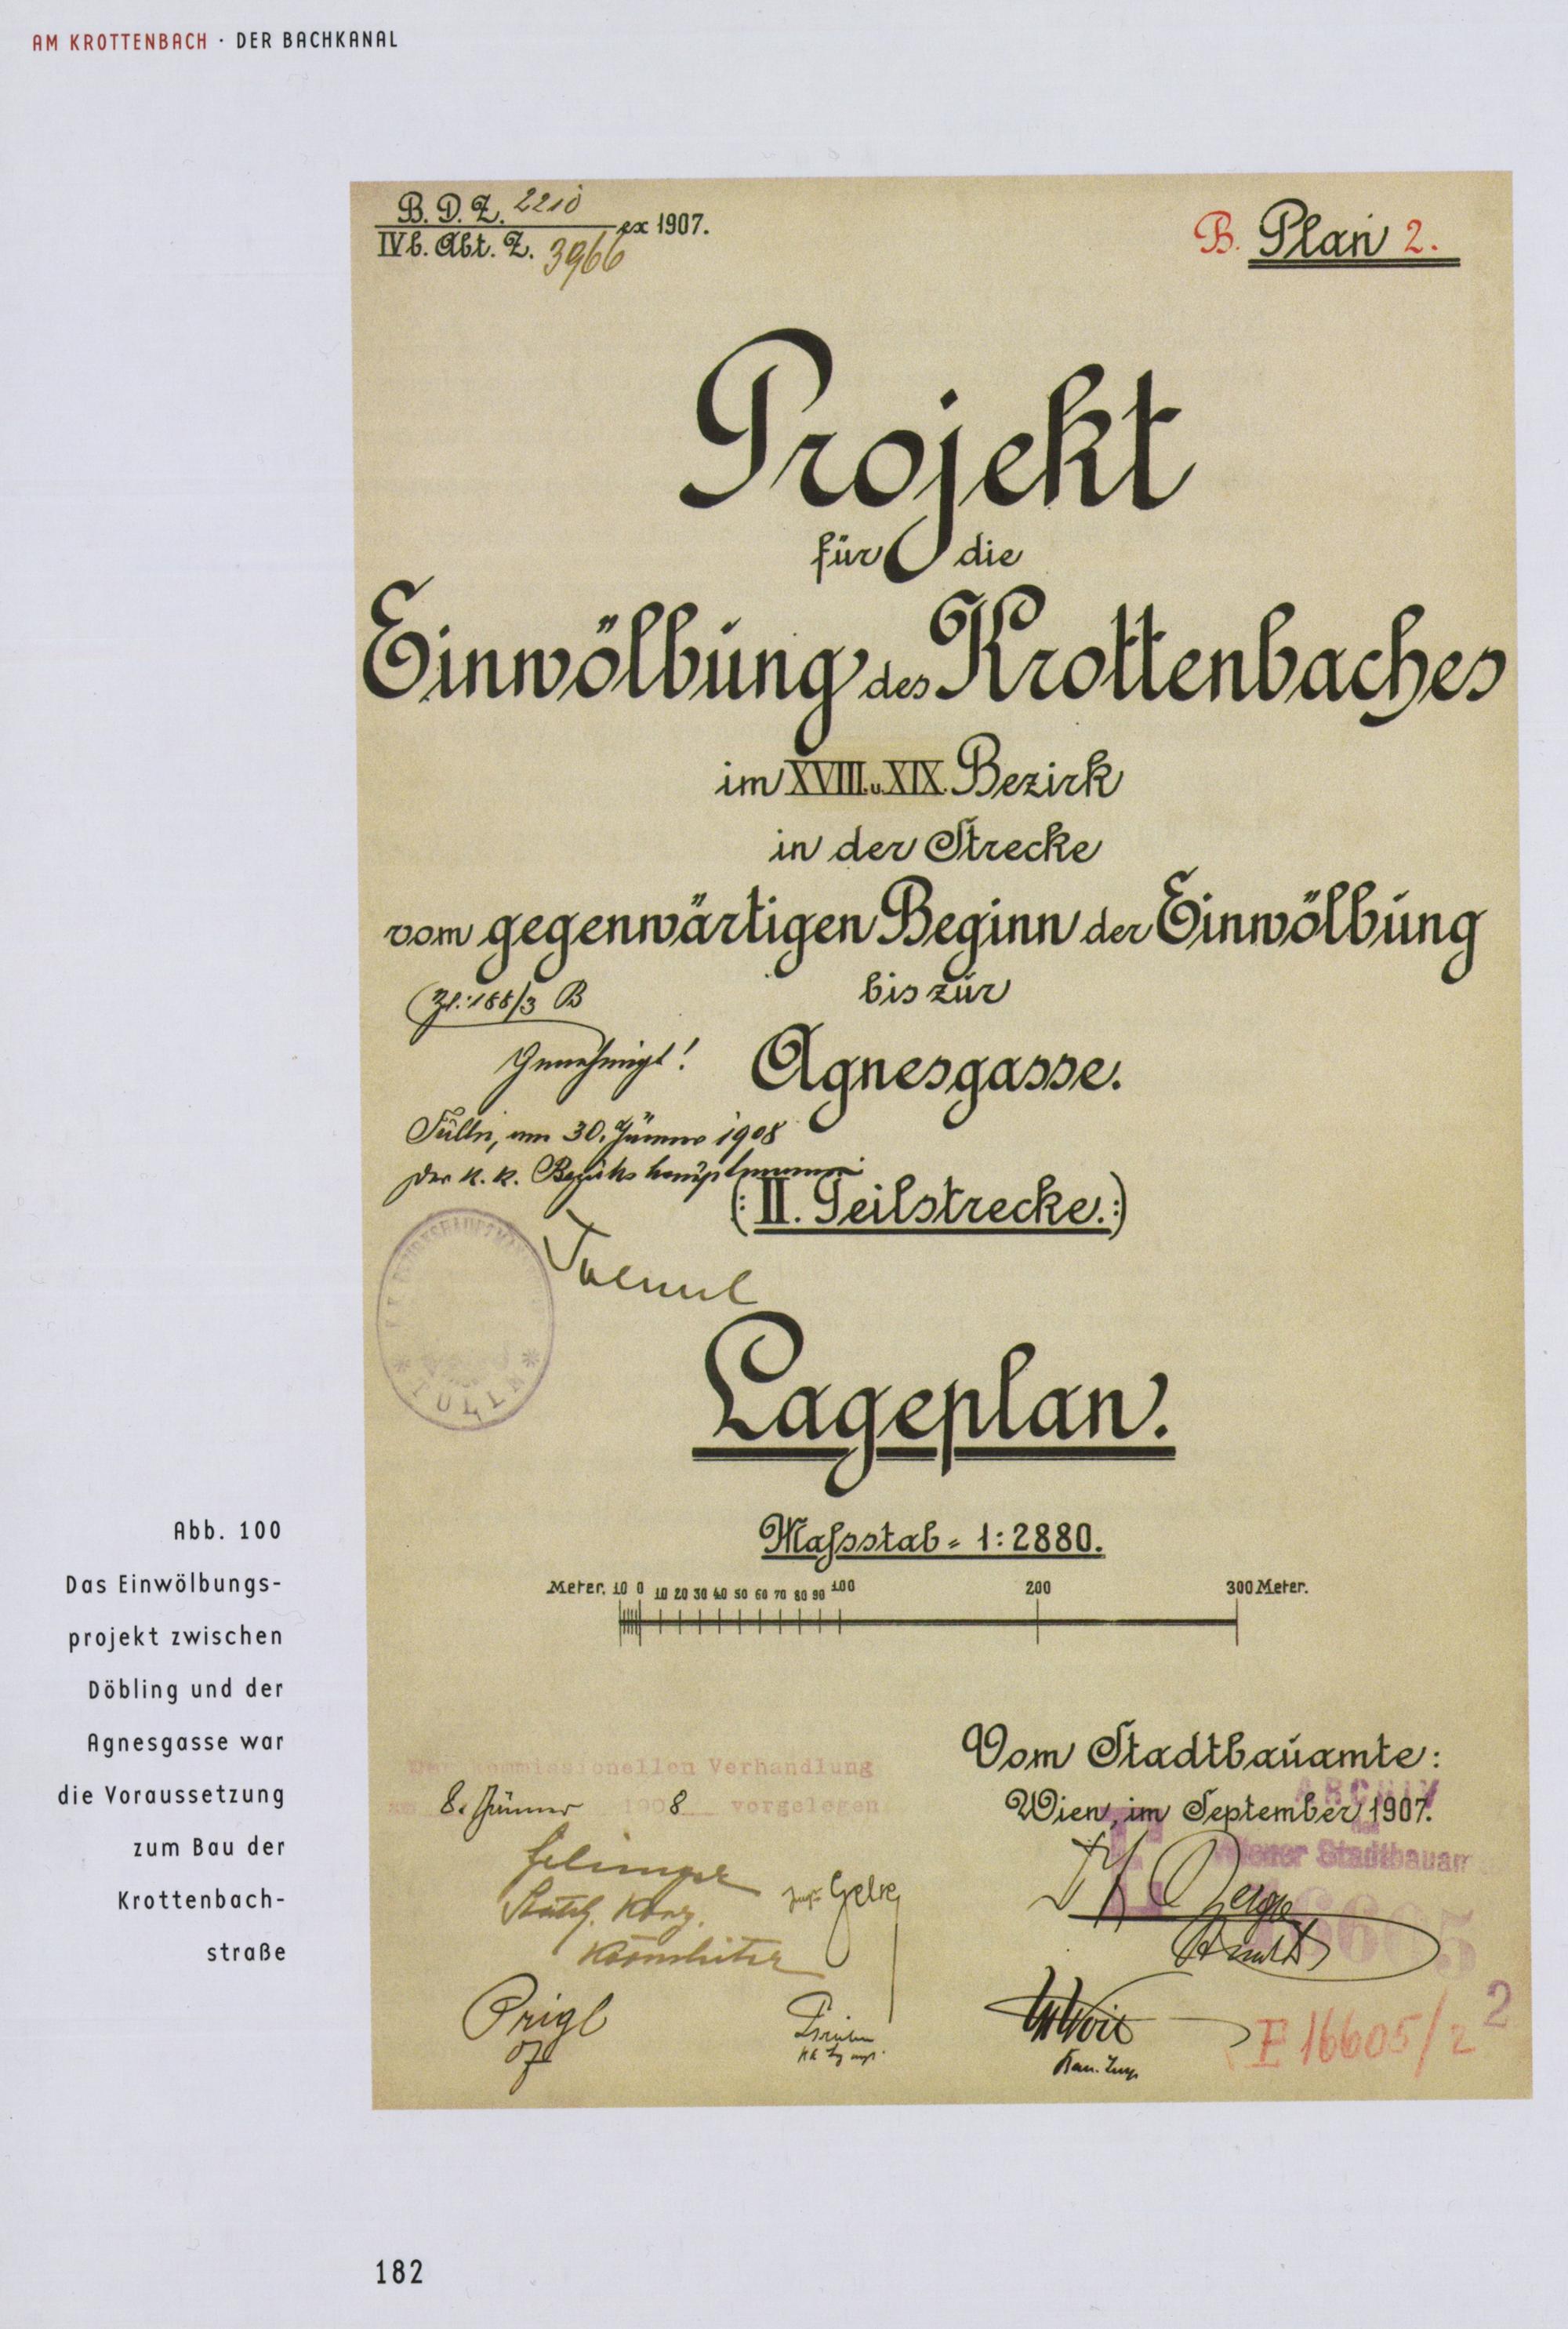 AM KROTTENBACH · DER BACHKANAL
B. D. Z. 2210
IVb. Abt. Z. 3966 ex 1907.
B. Plan 2.
Projekt
für die
Einwölbung des Krottenbaches
im XVIII. u. XIX. Bezirk
in der Strecke
vom gegenwärtigen Beginn der Einwölbung
bis zur
Agnesgasse.
Zl: 188/3 B
Genehmigt!
Tulln, am 30. Jänner 1908
Der k. k. Bezirkshauptmann:
(: II. Teilstrecke. :)
TULLN
Lageplan.
Massstab = 1:2880.
Meter. 10 0 10 20 30 40 50 60 70 80 90 100 200 300 Meter.
Der kommissionellen Verhandlung
am 8. Jänner 1908 vorgelegen
Prigl
Vom Stadtbauamte:
Wien, im September 1907.
ARCHIV
des
Wiener Stadtbauam
E 16605/2
2
Abb. 100
Das Einwölbungs-
projekt zwischen
Döbling und der
Agnesgasse war
die Voraussetzung
zum Bau der
Krottenbach-
straße
182